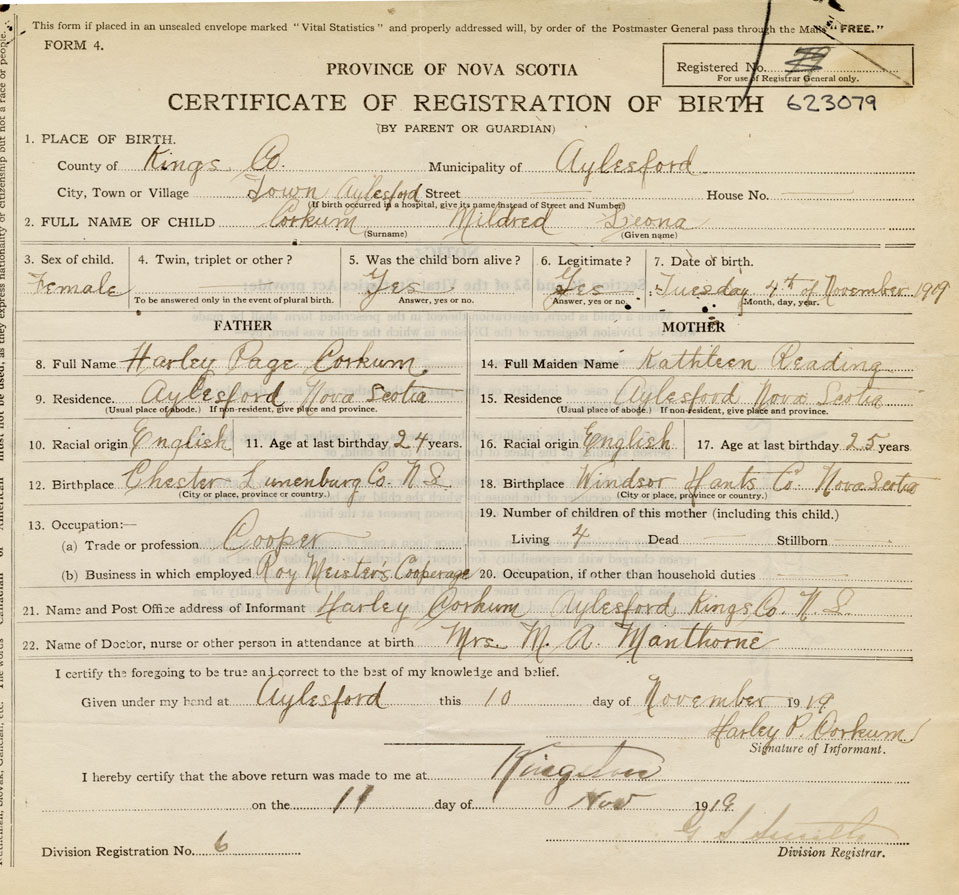 This form if placed in an unsealed envelope marked "Vital Statistics" and properly addressed will, by order of the Postmaster General pass through the Mails "FREE."
FORM 4.
Registered No. 79
For use of Registrar General only.
PROVINCE OF NOVA SCOTIA
CERTIFICATE OF REGISTRATION OF BIRTH 623079
(BY PARENT OR GUARDIAN)
1. PLACE OF BIRTH.
County of Kings Co. Municipality of Aylesford
City, Town or Village Town Aylesford Street House No.
(If birth occurred in a hospital, give its name instead of Street and Number)
2. FULL NAME OF CHILD Corkum Mildred Leona
(Surname) (Given name)
3. Sex of child. 4. Twin, triplet or other? 5. Was the child born alive? 6. Legitimate? 7. Date of birth.
Female Yes Yes Tuesday 4th of November 1919
To be answered only in the event of plural birth. Answer, yes or no. Answer, yes or no. Month, day, year.
FATHER MOTHER
8. Full Name Harley Page Corkum 14. Full Maiden Name Kathleen Reading
9. Residence. Aylesford Nova Scotia 15. Residence Aylesford Nova Scotia
(Usual place of abode.) If non-resident, give place and province. (Usual place of abode.) If non-resident, give place and province.
10. Racial origin English 11. Age at last birthday 24 years. 16. Racial origin English 17. Age at last birthday 25 years
12. Birthplace Chester Lunenburg Co. N.S. 18. Birthplace Windsor Hants Co. Nova Scotia
(City or place, province or country.) (City or place, province or country.)
13. Occupation:— 19. Number of children of this mother (including this child.)
(a) Trade or profession Cooper Living 4 Dead Stillborn
(b) Business in which employed Roy Meister's Cooperage 20. Occupation, if other than household duties
21. Name and Post Office address of Informant Harley Corkum Aylesford Kings Co. N.S.
22. Name of Doctor, nurse or other person in attendance at birth Mrs. M. A. Manthorne
I certify the foregoing to be true and correct to the best of my knowledge and belief.
Given under my hand at Aylesford this 10 day of November 1919
Harley P. Corkum
Signature of Informant.
I hereby certify that the above return was made to me at Kingston
on the 11 day of Nov 1919.
G S Smith
Division Registration No. 6 Division Registrar.